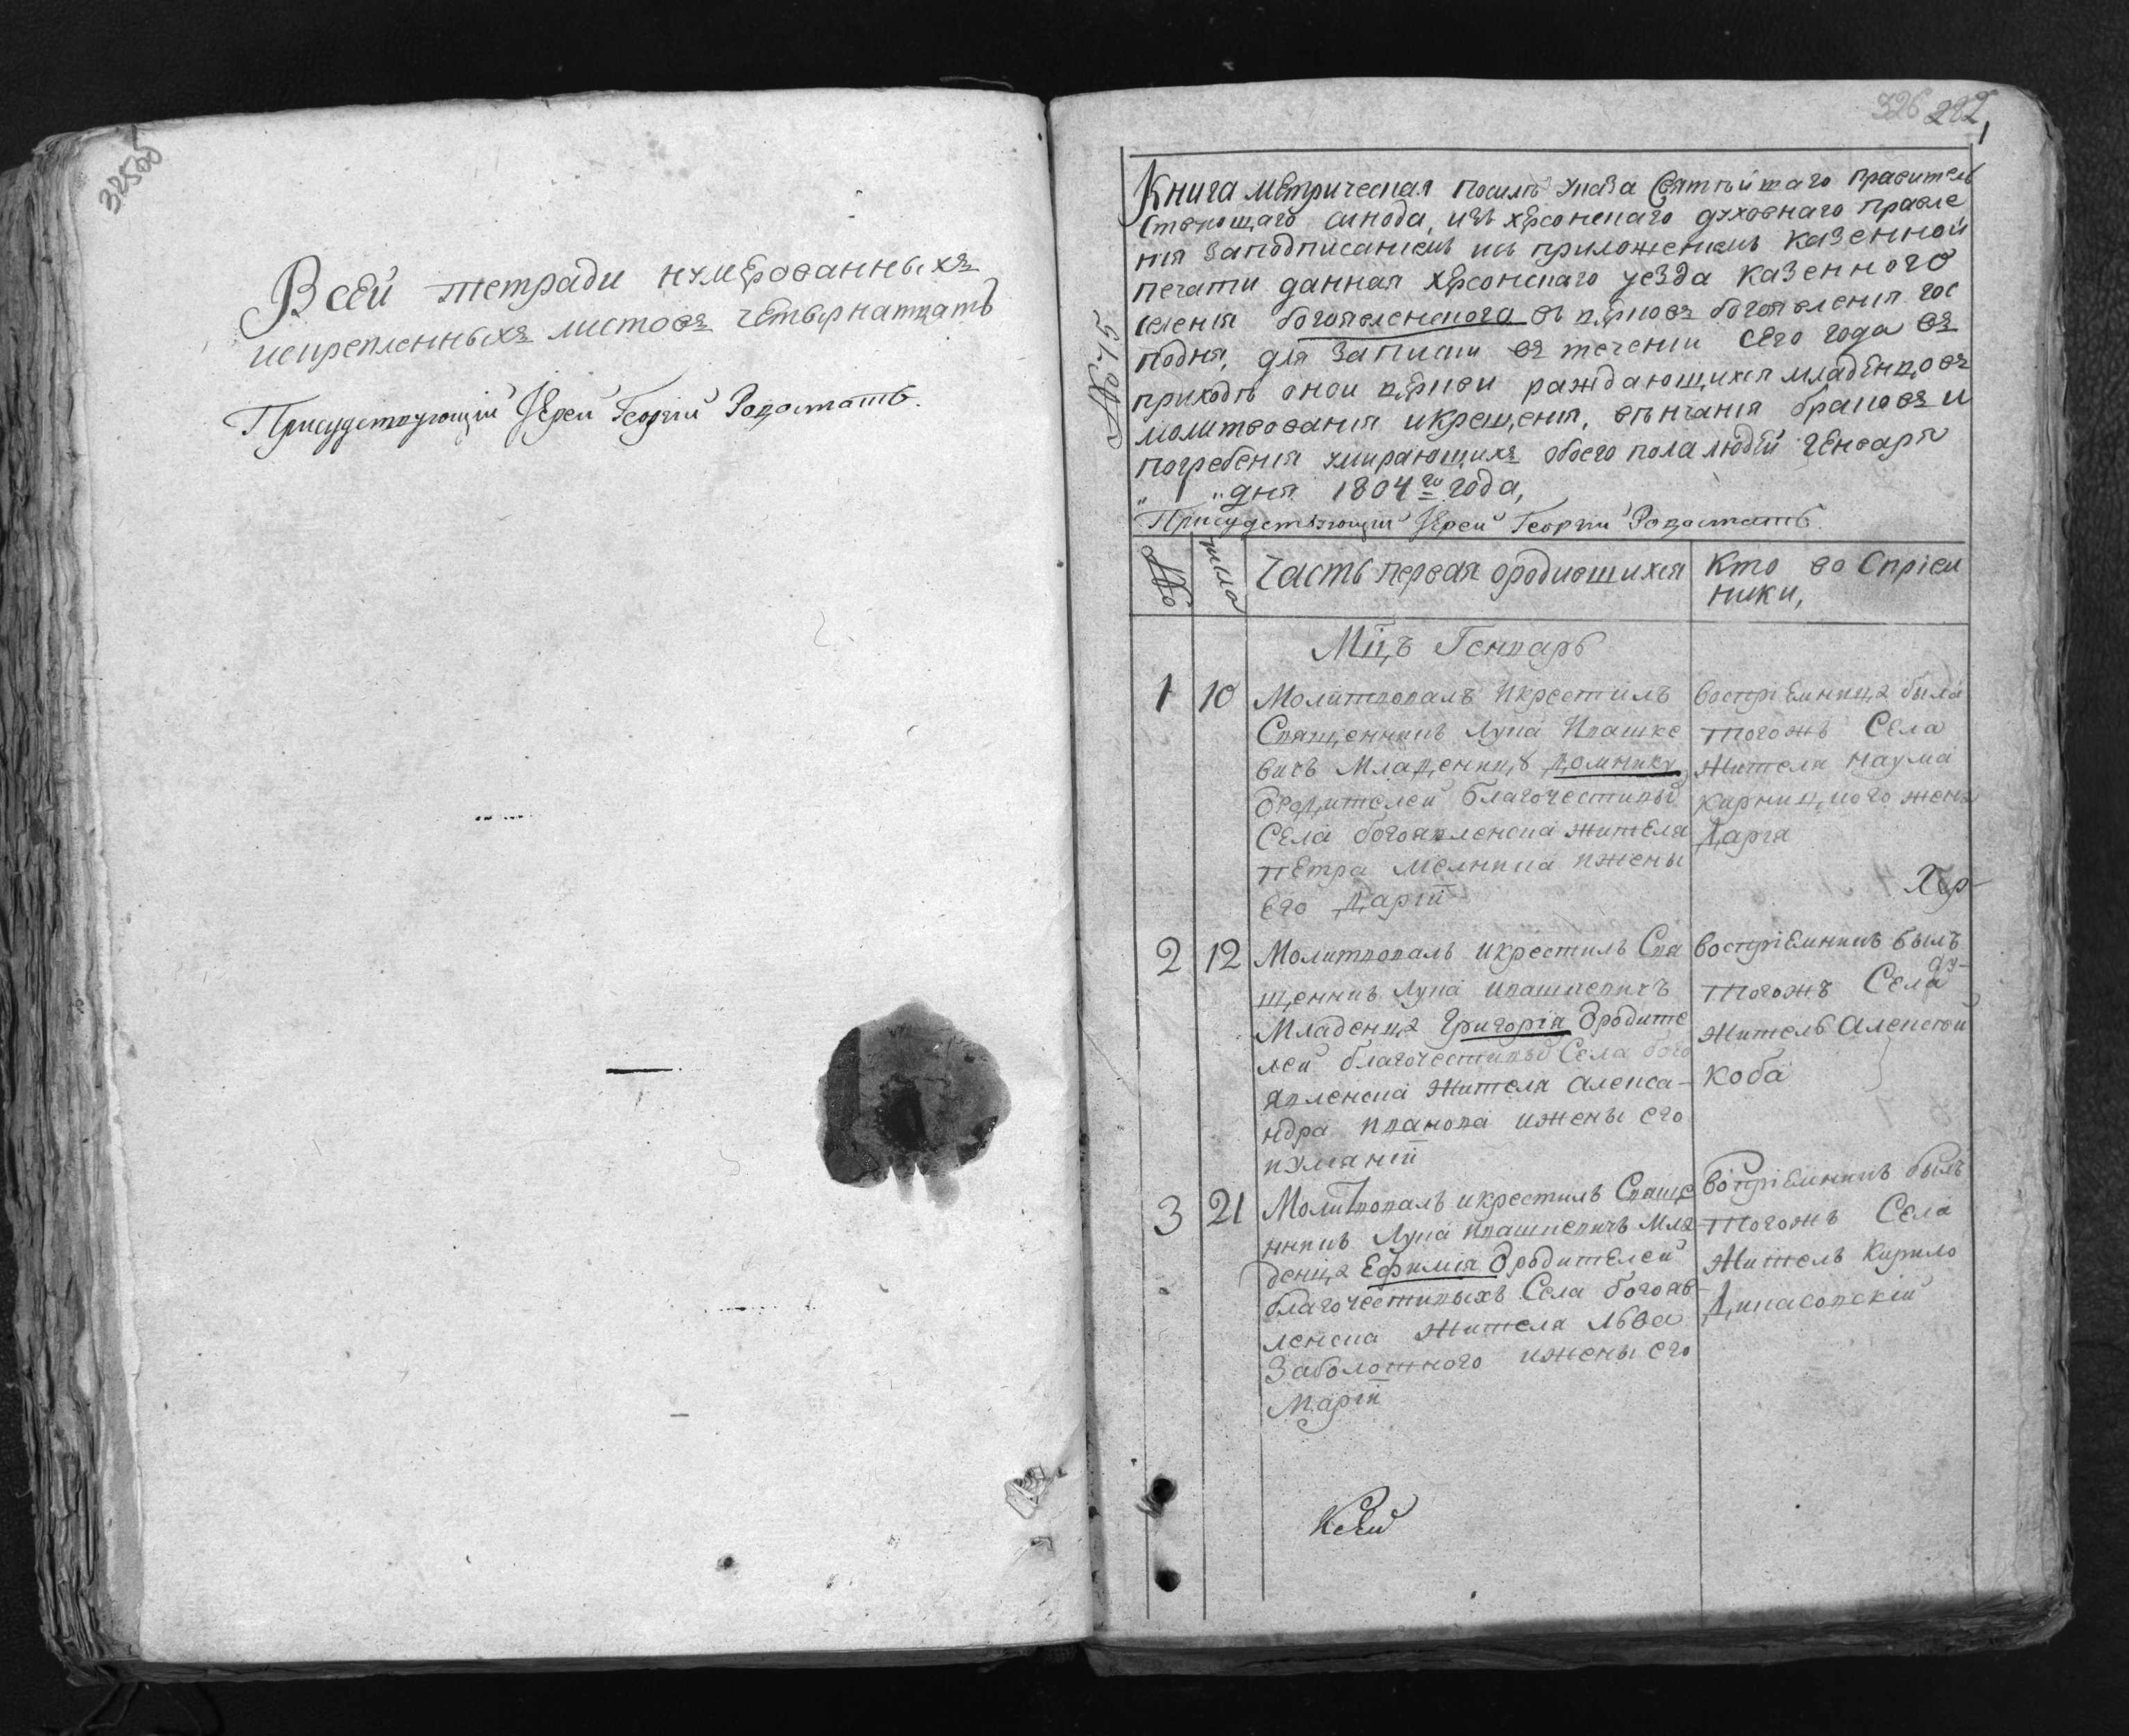 Всей тетради нумерованныхъ
искрепленныхъ листовъ четырнатцать
Присудствующiй Iерей Георгiй
326 282
1
Книга метрическая посилѣ указа Святѣйшаго правитель
ствующаго синода, изъ херсонскаго духовнаго правле
нiя заподписанiемъ исъ приложенiемъ казенной
печати данная херсонскаго уезда казенного
селенiя богоявленского въ церковь богоявленiя гос
подня, для записки въ теченiи сего года въ
приходѣ оной церкви раждающихся младенцовъ
молитвования икрещенiя, вѣнчанiя браковъ и
погребенiя умирающихъ обоего пола людей генваря
„ 1 „ дня 1804го года,
Присудствующiй Iерей Георгiй
№
число
Часть первая ородившихся
Кто воспрiем
ники,
Мцъ Генварь
1 10
Молитвовалъ Икрестилъ
Священникъ Лука Ивашке
вичъ Младеницу домнику
Ѿродителей благочестивых
Села богоявленска жителя
петра Мелника ижены
его Дарiи
воспрiемница была
тогожъ Села
жителя наума
жена
Дарiя
Хер-
2 12
Молитвовалъ икрестилъ Свя
щенникъ Лука ивашкевичъ
Младенца Григорiя Ѿродите
лей благочестивых Села бого
явленска жителя Алекса-
ндра иванова ижены его
воспрiемникъ былъ
тогожъ Села
ду-
житель Алексей
коба
3 21
Молитвовалъ икрестилъ Свяще
нникъ Лука ивашкевичъ Мла
денца Ефимiя Ѿродителей
благочестивыхъ Села богояв
ленска жителя льва
Заболотного ижены его
Марiи
воспрiемникъ былъ
тогожъ Села
житель Кирило
Ксей